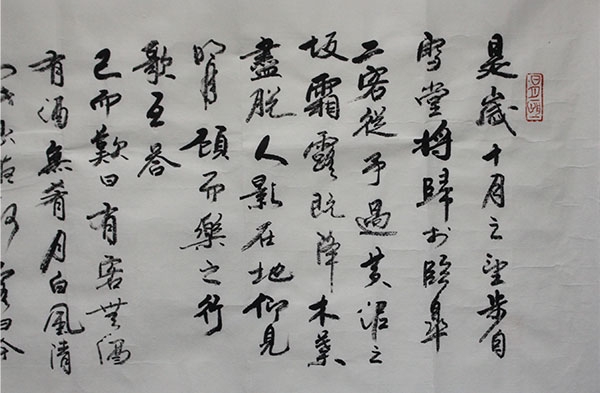 是歲十月之望步自
雪堂將歸於臨皋
二客從予過黃泥之
坂霜露既降木葉
盡脫人影在地仰見
明月顧而樂之行
歌互荅
已而歎曰有客無酒
有酒無肴月白風清